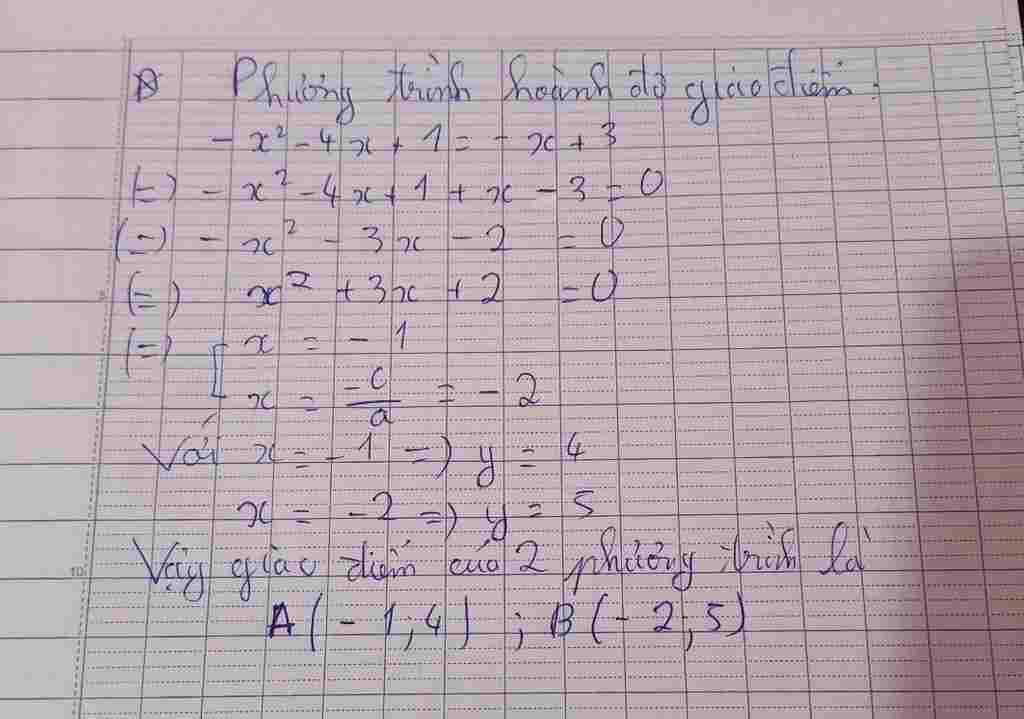 Phương trình hoành độ giao điểm:
- x² - 4x + 1 = - x + 3
(=) - x² - 4x + 1 + x - 3 = 0
(=) - x² - 3x - 2 = 0
(=) x² + 3x + 2 = 0
(=) [ x = - 1
x = -c/a = - 2
Với x = - 1 => y = 4
x = - 2 => y = 5
Vậy giao điểm của 2 phương trình là
A(- 1; 4) ; B(- 2; 5)